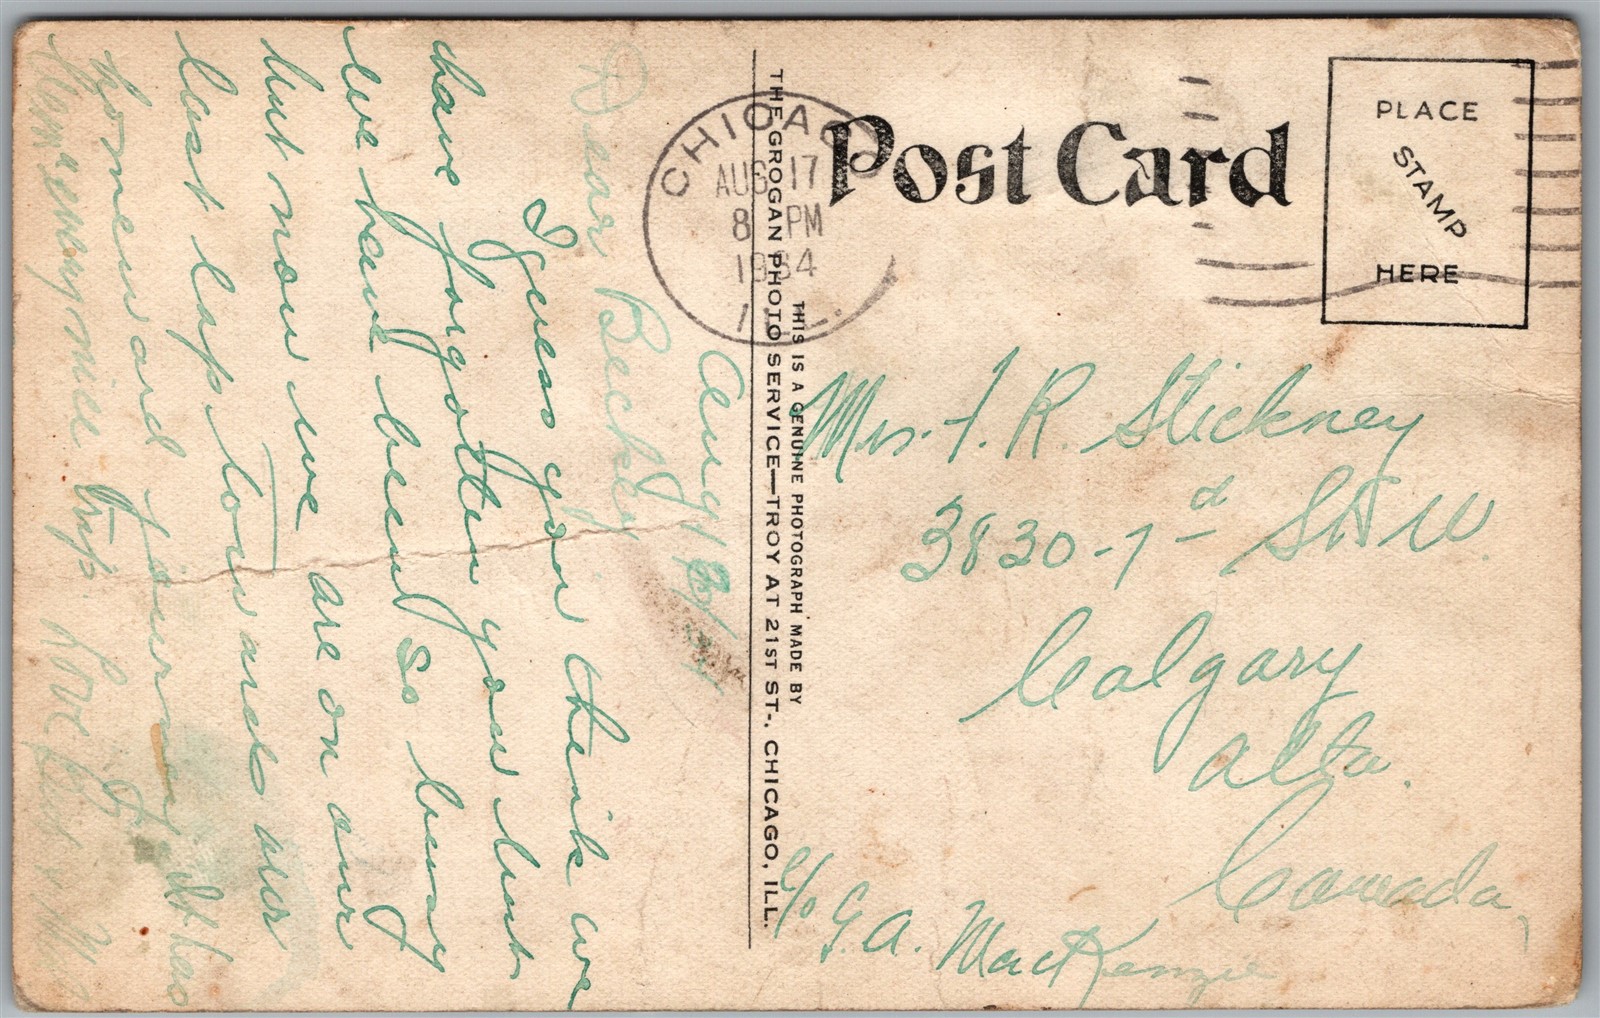 Post Card
PLACE
STAMP
HERE
CHICAGO
AUG 17
8 PM
1934
ILL.
THE GROGAN PHOTO SERVICE—TROY AT 21ST ST., CHICAGO, ILL.
THIS IS A GENUINE PHOTOGRAPH MADE BY
Aug 18/34
Dear Becky
I guess you think we
have forgotten you but
we have been so busy
but now we are on our
last lap towards our
homeward journey. It has
been a very nice trip. Love
Mrs. F. R. Stickney
3830-7 St W.
Calgary
Alta.
Canada,
c/o G. A. MacKenzie